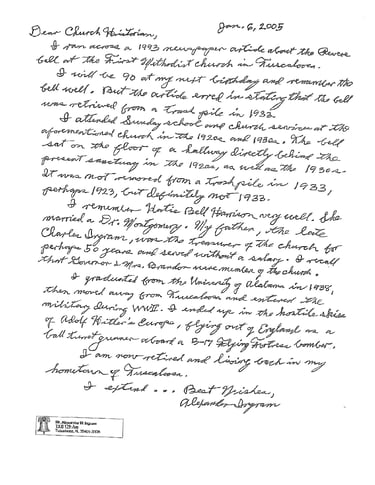 Jan. 6, 2005
Dear Church Historian,
I ran across a 1993 newspaper article about the Revere
bell at the First Methodist church in Tuscaloosa.
I will be 90 at my next birthday and remember the
bell well. But the article erred in stating that the bell
was retrived from a trash pile in 1933.
I attended Sunday school and church services at the
aforementioned church in the 1920s and 1930s. The bell
sat on the floor of a hallway directly behind the
present sanctuary in the 1920s, as well as the 1930s.
It was not removed from a trash pile in 1933,
perhaps 1923, but definitely not 1933.
I remember Hatie Bell Harison very well. She
married a Dr. Montgomery. My father, the late
Charles Ingram, was the treasurer of the church for
perhaps 50 years and served without a salary. I recall
that Governor & Mrs. Brandon were members of the church.
I graduated from the University of Alabama in 1938,
then moved away from Tuscaloosa and entered the
military during WWII. I ended up in the hostile skies
of Adolf Hitler's Europe, flying out of England as a
ball turret gunner aboard a B-17 Flying Fortress bomber.
I am now retired and living back in my
hometown of Tuscaloosa.
I extend ... Best Wishes,
Alexander Ingram
Mr. Alexander W Ingram
Tuscaloosa, AL